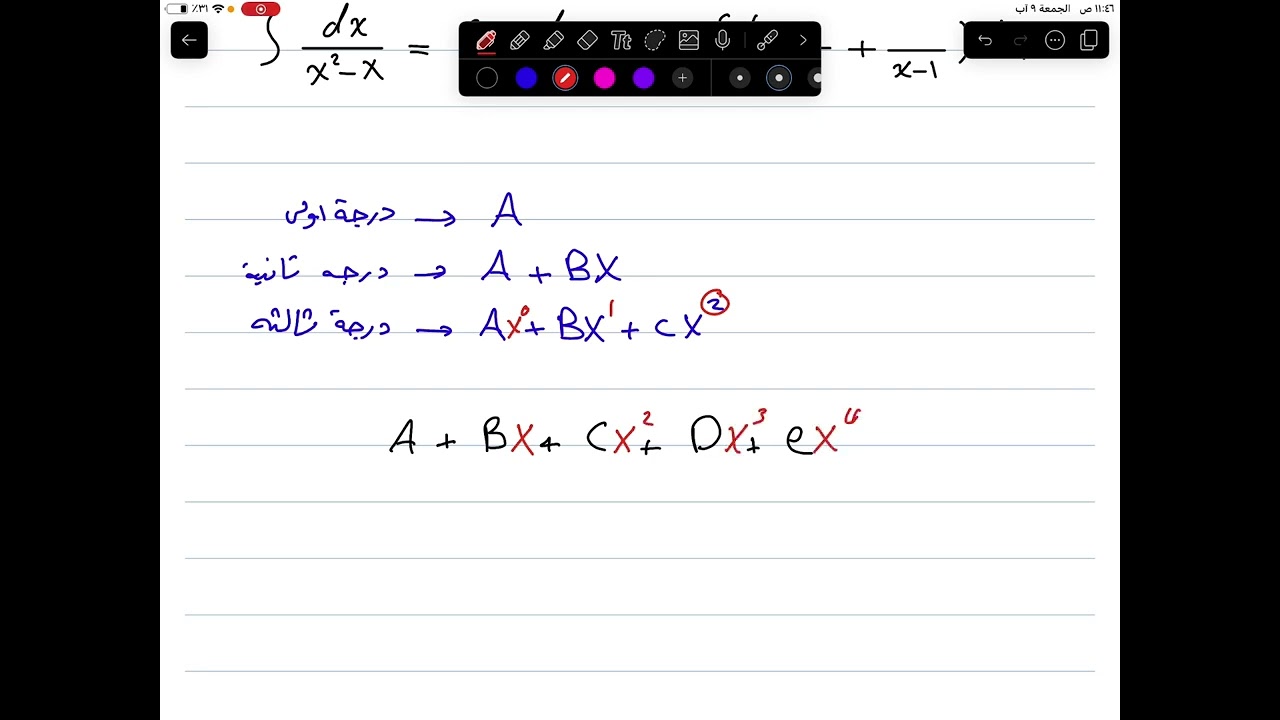 ١١:٤٦ ص الجمعة ٩ آب
٪٣١
∫ dx / x² - x =
+ / x-1
Tt
درجة اولى → A
درجه ثانية → A + BX
درجة ثالثه → AX⁰ + BX¹ + CX²
A + BX + CX² + DX³ + eX⁴